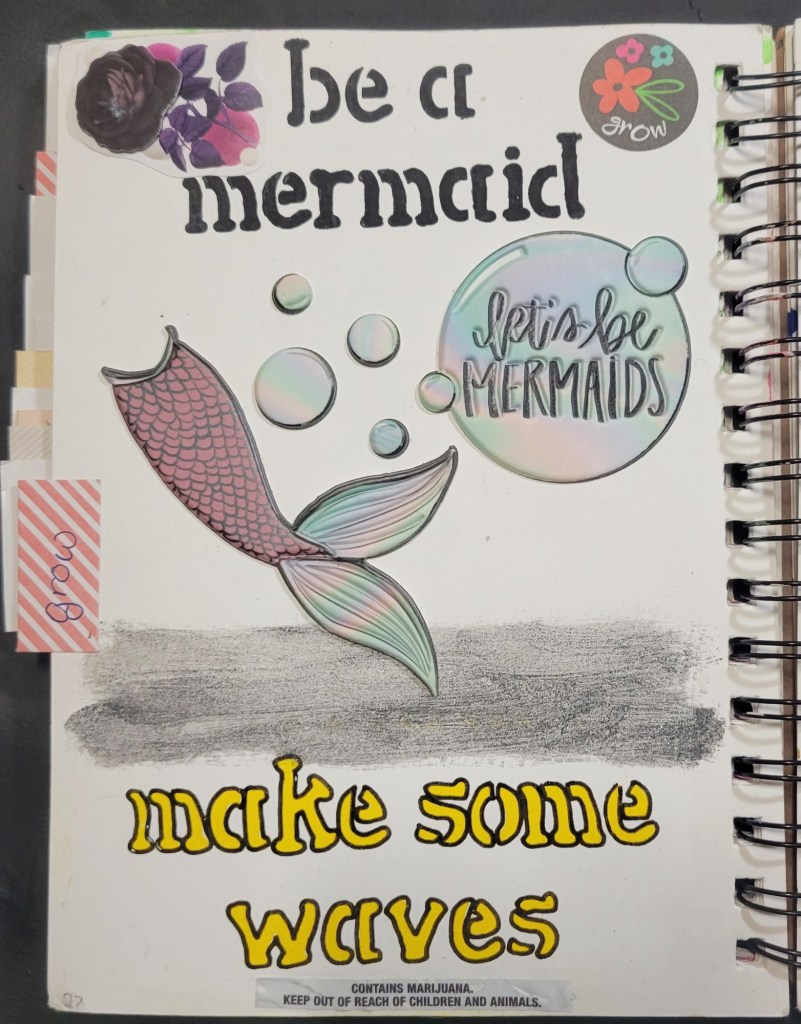 be a
mermaid
grow
let's be
MERMAIDS
grow
make some
waves
CONTAINS MARIJUANA.
KEEP OUT OF REACH OF CHILDREN AND ANIMALS.